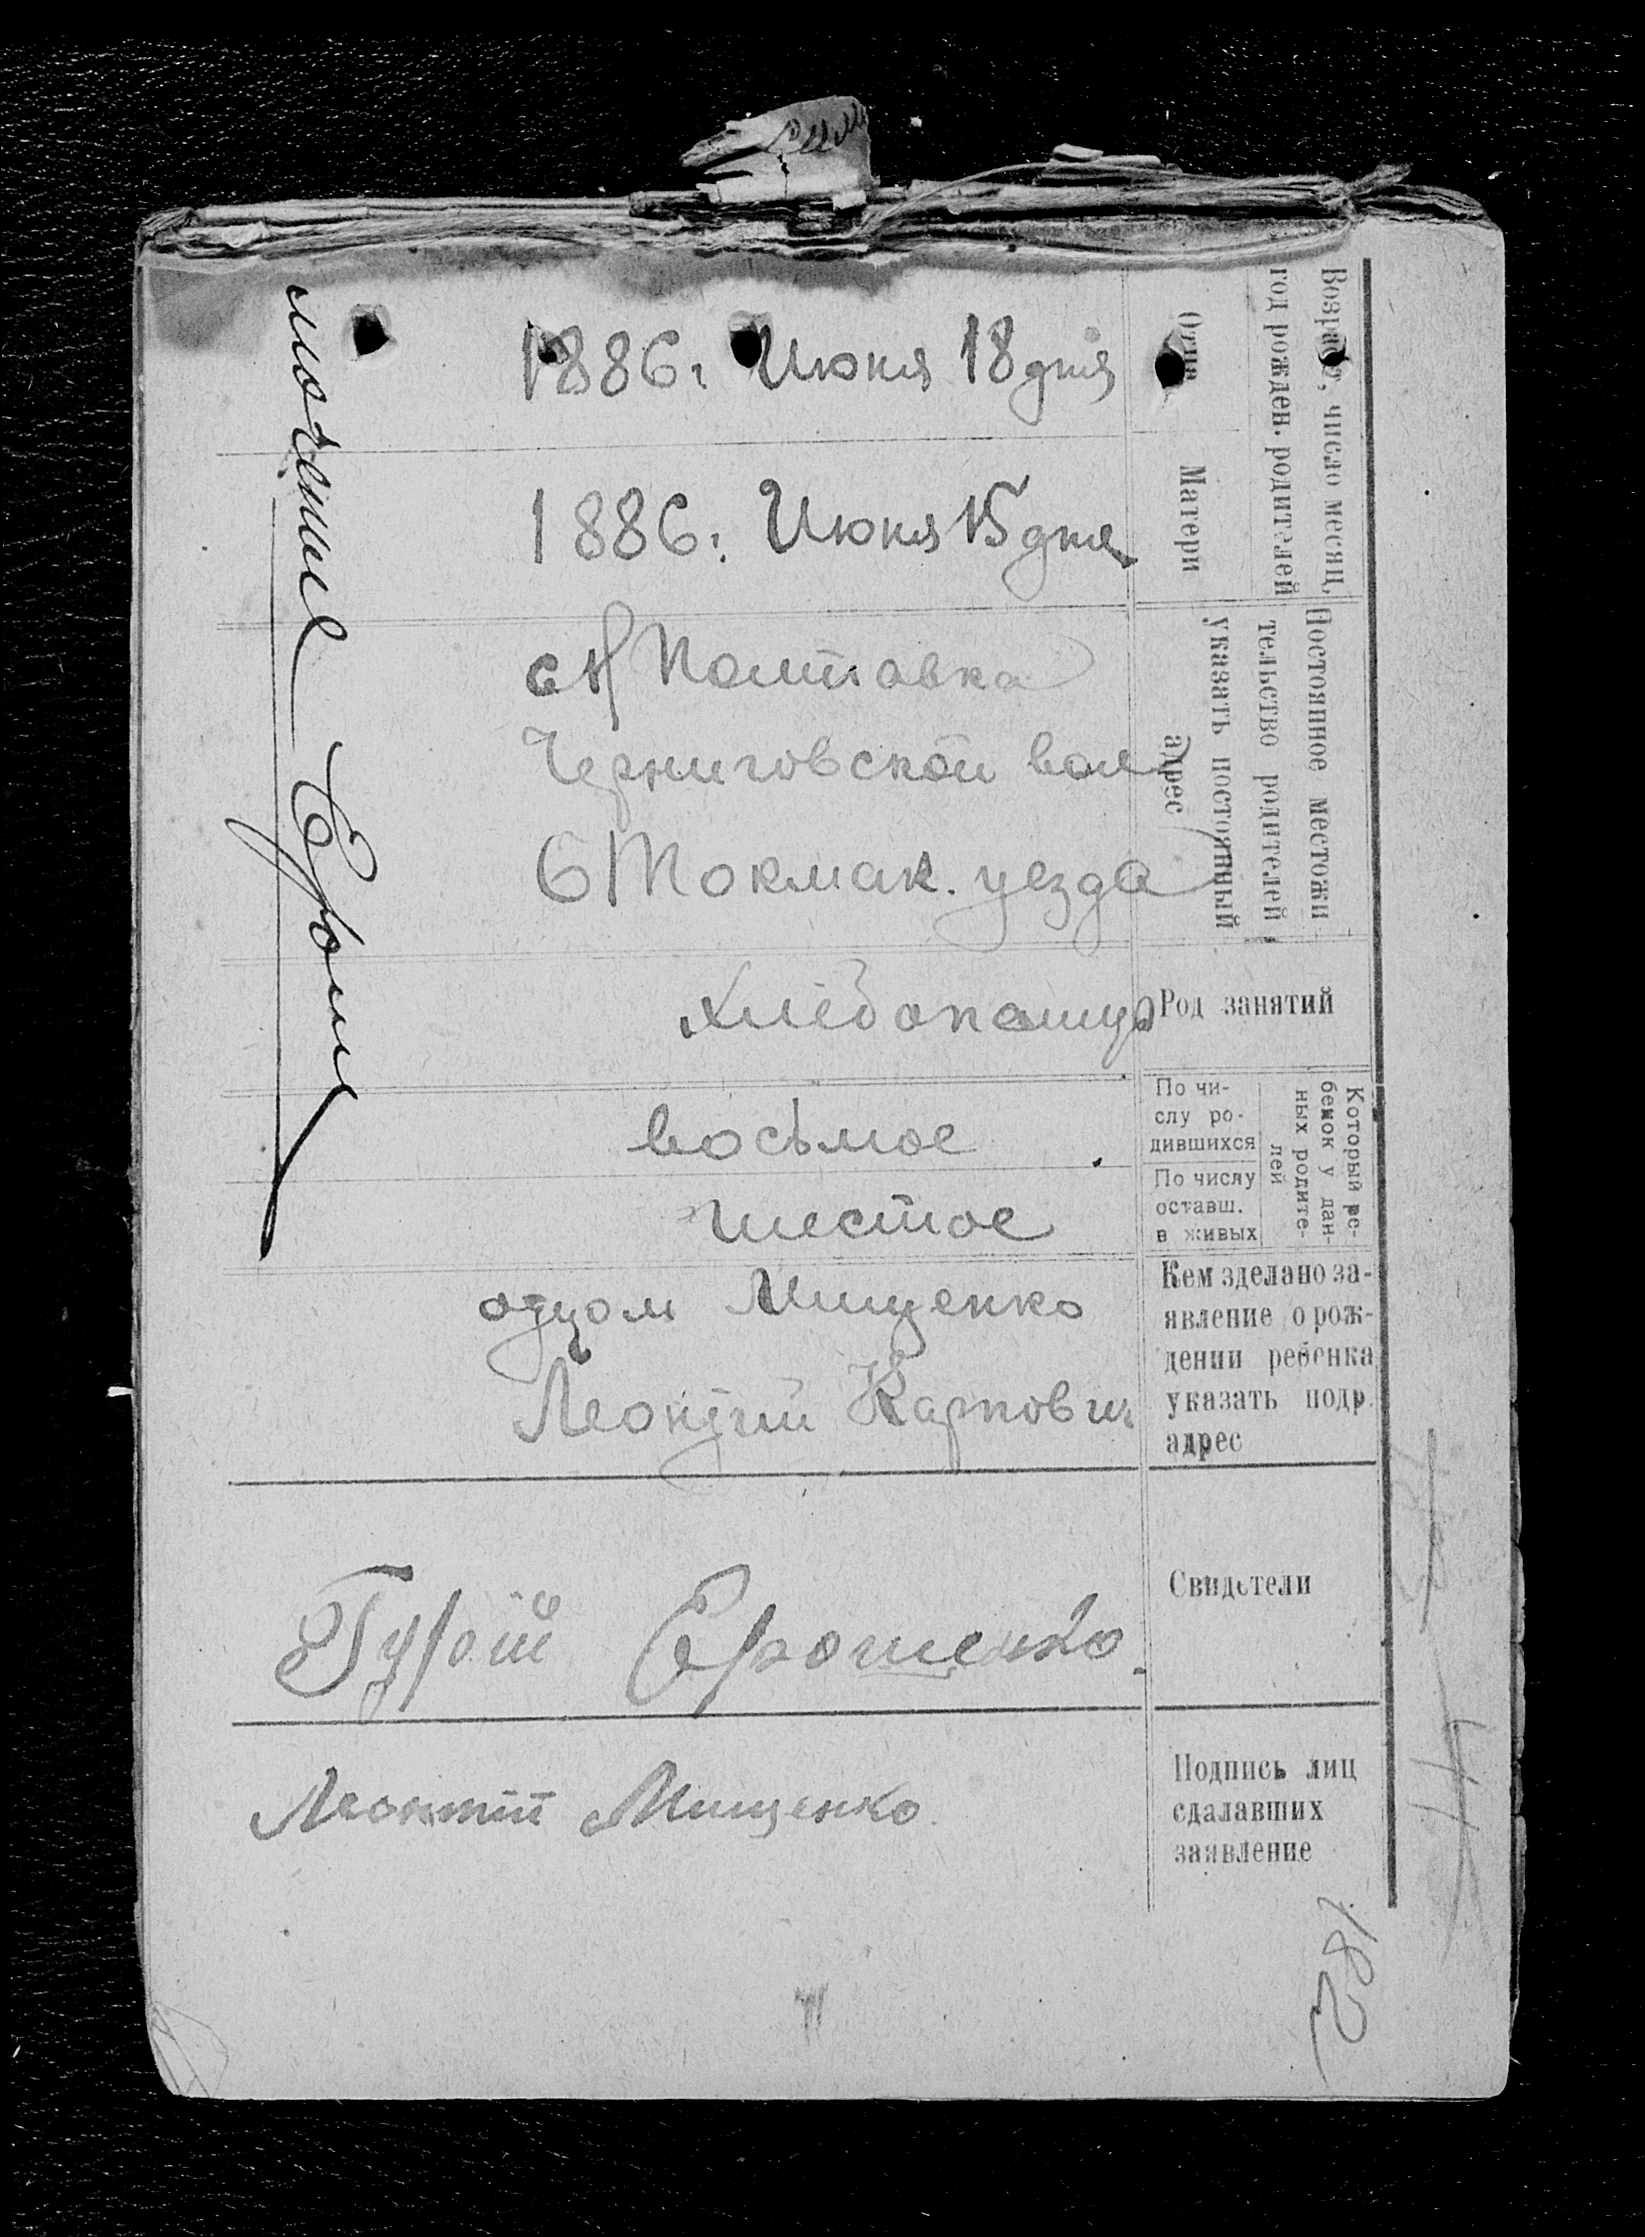 Возраст, число месяц,
год рожден. родителей
Отца
1886г Июня 18 дня
Матери
1886г. Июня 15 дня
Постоянное местожи
тельство родителей
указать постоянный
адрес
Полтавка
Черниговской вол
Б Токмак. уезда
Род занятий
Хлебопашец
Который ре-
бенок у дан-
ных родите-
лей
По чи-
слу ро-
дившихся
восьмое
По числу
оставш.
в живых
шестое
Кем зделано за-
явление о рож-
дении ребенка
указать подр.
адрес
отцом Мищенко
Леонтий Карпович
Свидетели
Ерошенко.
Подпись лиц
сдалавших
заявление
Леонтій Мищенко
182